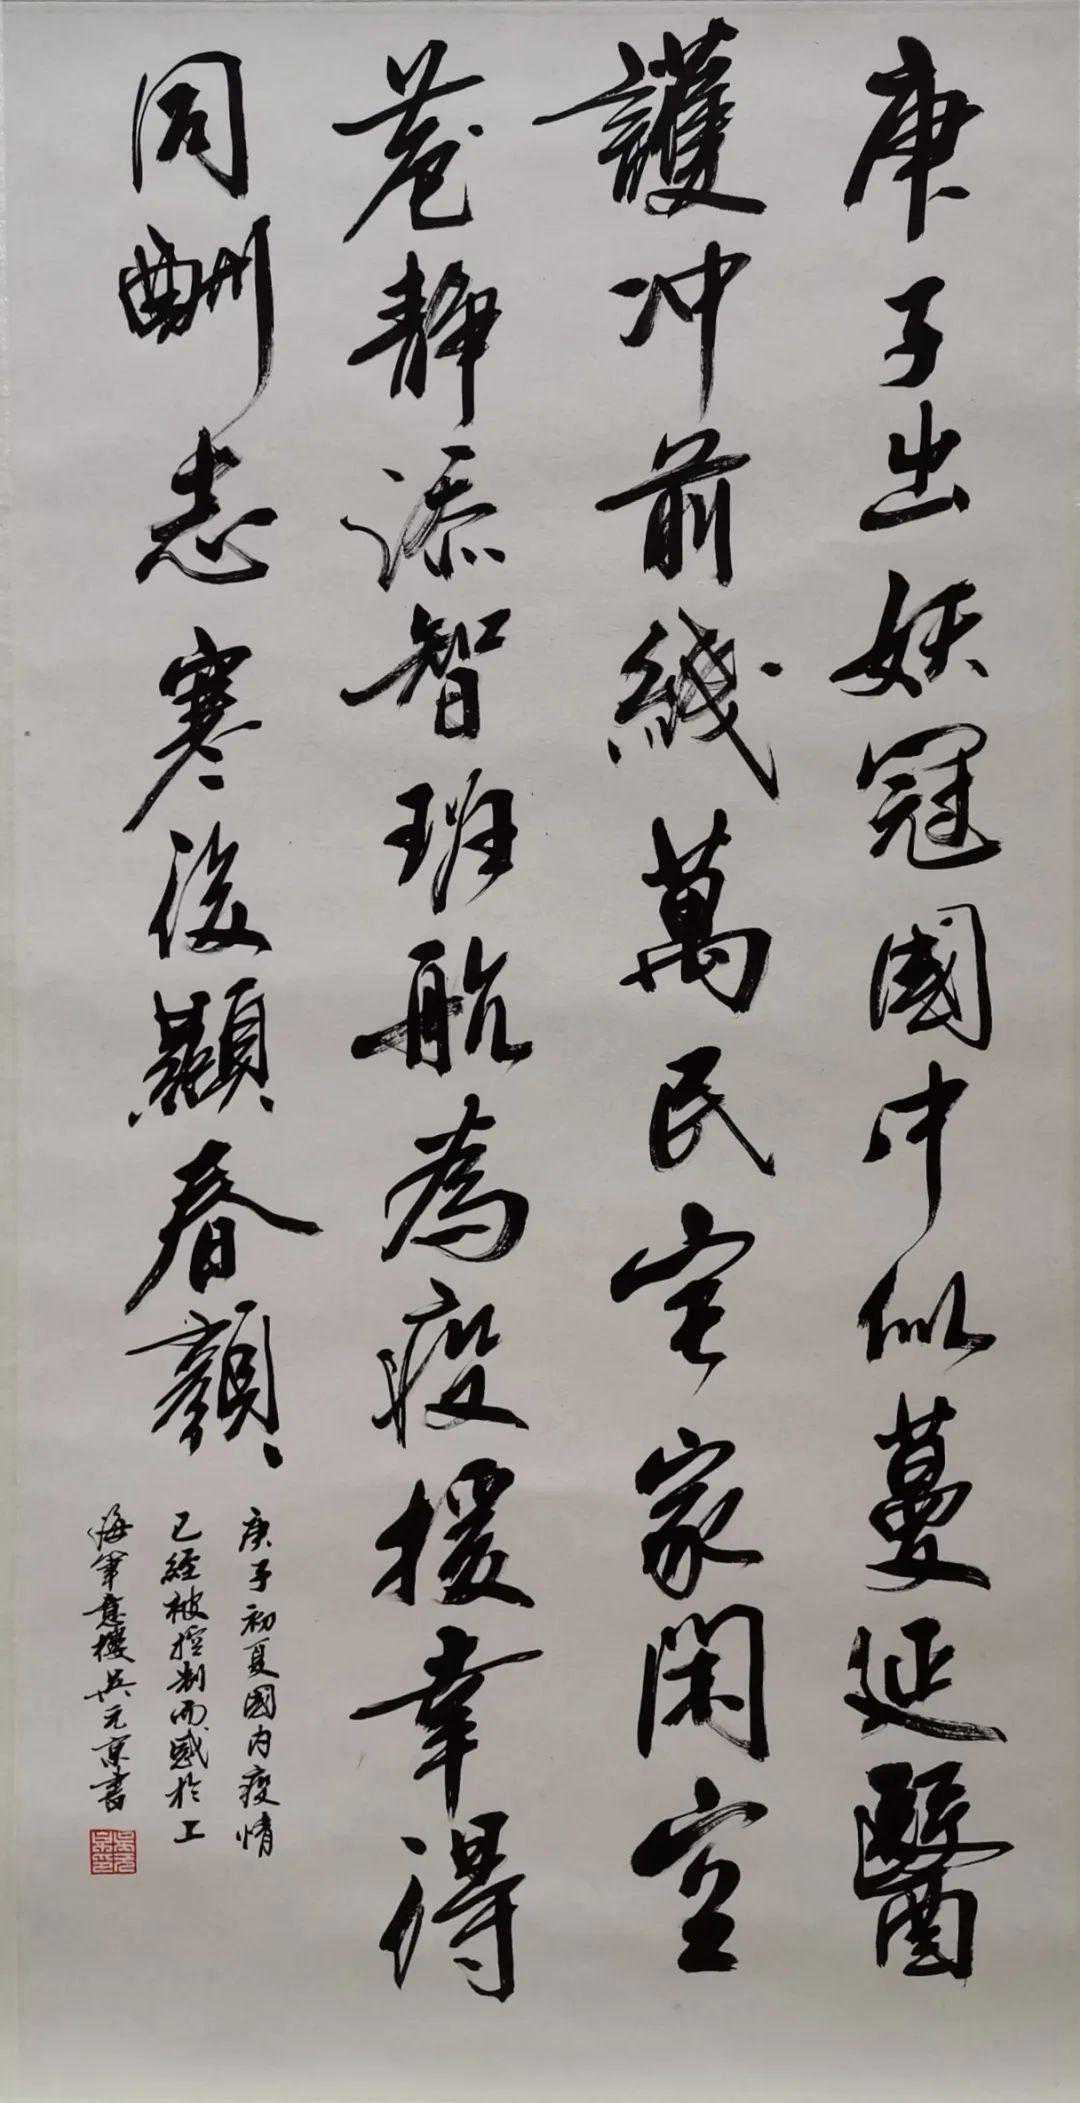 庚子出妖冠國中似蔓延醫
護冲前綫萬民宅家閑空
巷静添智班航為疫援幸得
同酬志寒後顯春顏
庚子初夏國内疫情
已經被控制而感於上
海意樓吴元京書